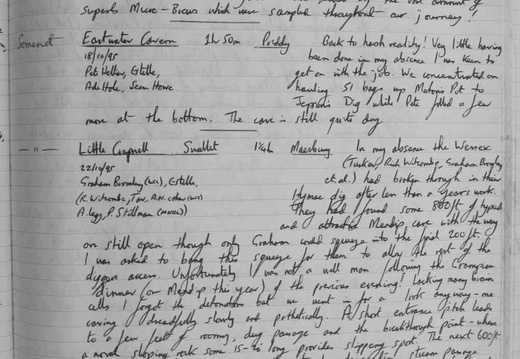 superb Muse - Brews which were sampled throughout our journey!
Somerset Eastwater Cavern 1h 50m Priddy Back to harsh reality! Very little having
18/10/95 been done in my absence I was keen to
Pete Hellier, Estelle, get on with the job. We concentrated on
Ade Hole, Sean Howe. hauling 51 bags up Matona Pot to
Jepson's Dig while Pete filled a few
more at the bottom. The cave is still quite dry
— " — Little Crapnell Swallet 1¼h Maesbury In my absence the Wessex
22/10/95 (Tusker, Rich Witcombe, Graham Bromley
Graham Bromley (WCC), Estelle, et.al.) had broken through in their
(R. Witcombe, Tav, A.N. other (WCC) Hymac dig after less than a years work.
A. Legg, P. Stillman (MNRC)) They had found some 800ft of typical
and attractive Mendip cave with the way
on still open though only Graham could squeeze into the final 200ft.
I was asked to bang this squeeze for them to allow the rest of the
diggers access. Unfortunately I was not a well man following the Grampian
dinner (on Mendip this year) of the previous evening! Lacking many brain
cells I forgot the detonators but we went in for a look anyway - me
caving dreadfully slowly and pathetically. A short entrance pitch leads
to a few feet of roomy, dug passage and the breakthrough point - where
a novel sloping rock some 15-20' long provides slippery sport. The next 600ft
stream passage